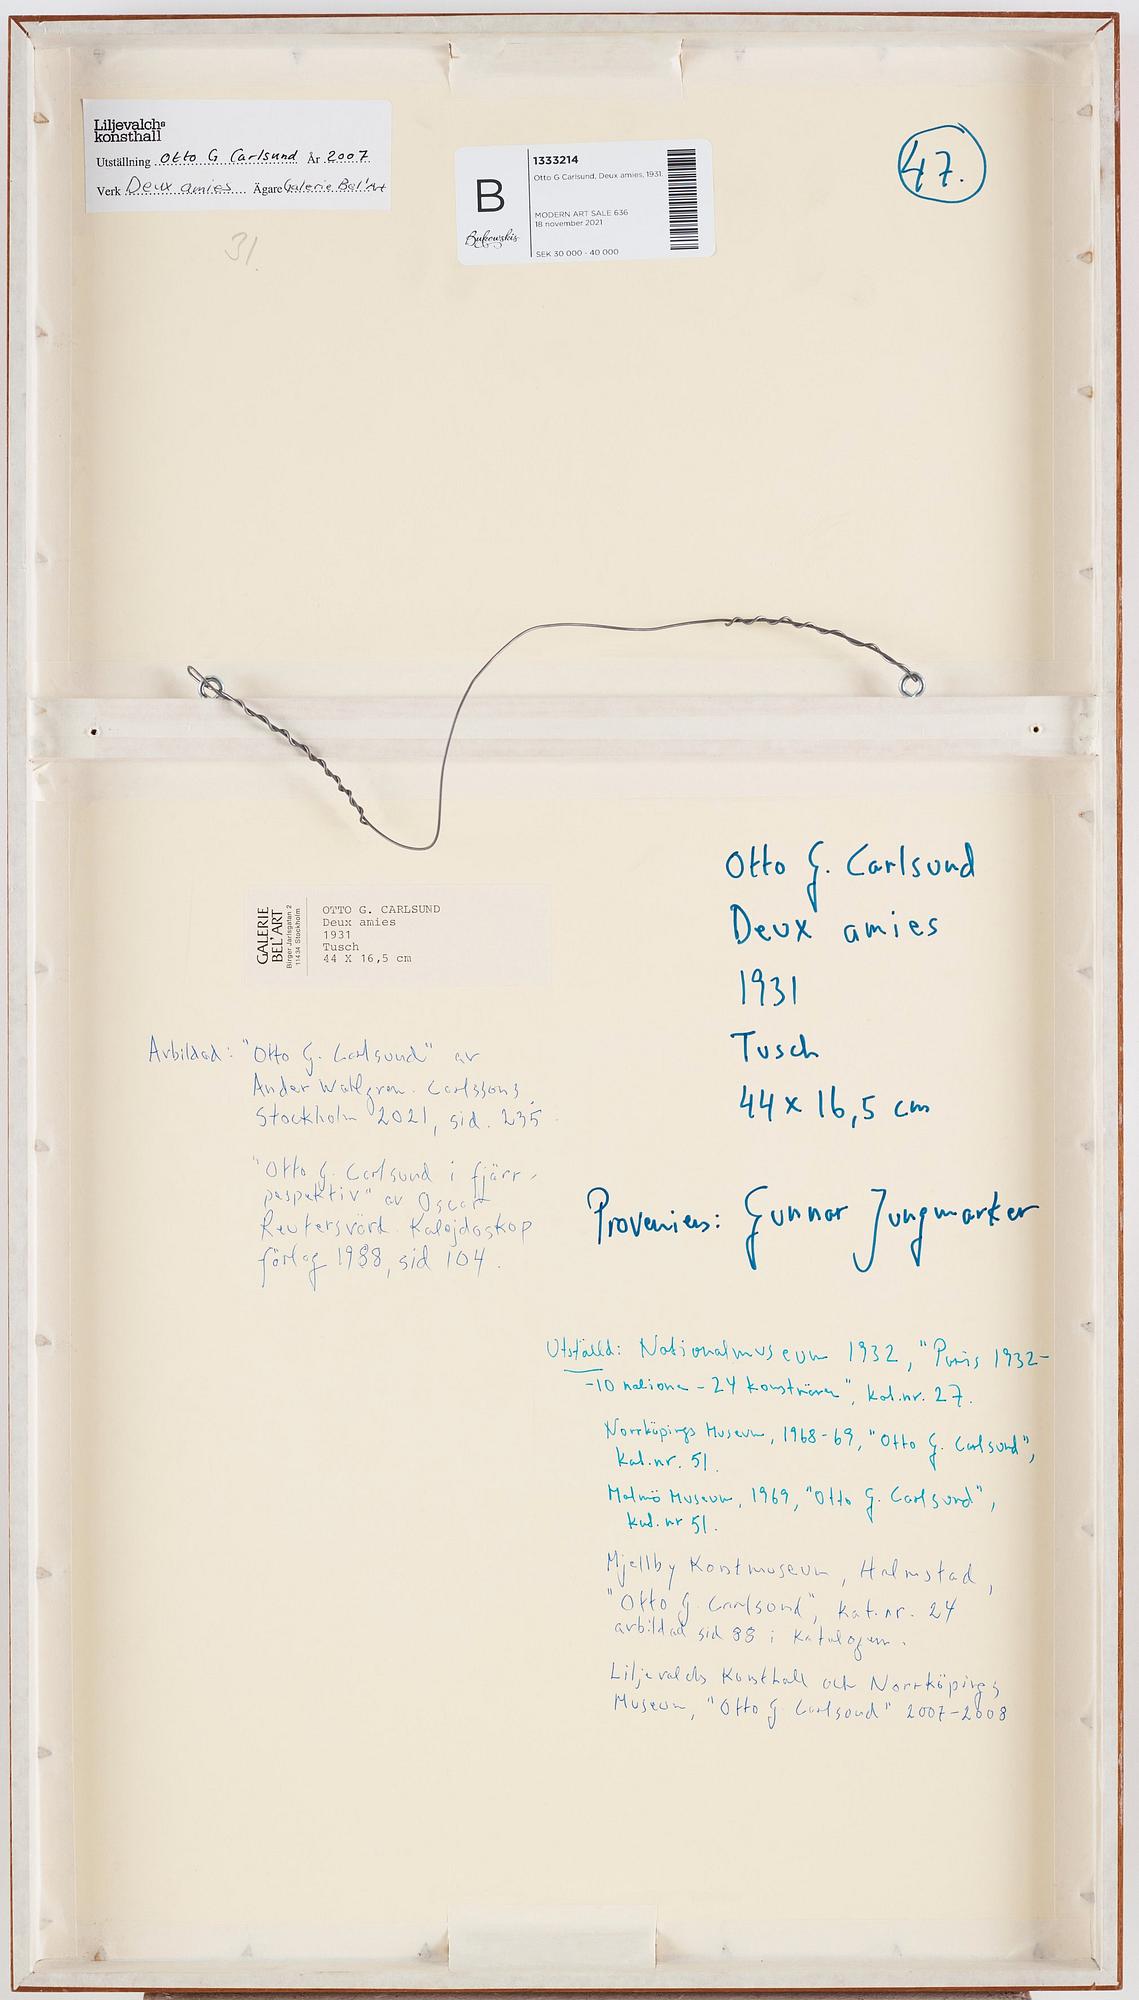 Liljevalchs
konsthall
Utställning Otto G Carlsund År 2007
Verk Deux amies Ägare Galerie Bel'Art
31.
B
Bukowskis
1333214
Otto G Carlsund, Deux amies, 1931.
MODERN ART SALE 636
18 november 2021
SEK 30 000 - 40 000
47.
GALERIE
BEL'ART
Birger Jarlsgatan 2
11434 Stockholm
OTTO G. CARLSUND
Deux amies
1931
Tusch
44 X 16,5 cm
Otto G. Carlsund
Deux amies
1931
Tusch
44 x 16,5 cm
Avbildad: "Otto G. Carlsund" av
Ander Wahlgren. Carlssons.
Stockholm 2021, sid. 235
"Otto G. Carlsund i fjärr-
pespektiv" av Oscar
Reutersvärd. Kalejdoskop
förlag 1988, sid 104.
Proveniens: Gunnar Jungmarker
Utställd: Nationalmuseum 1932, "Paris 1932-
-10 nationer - 24 konstnärer", kat.nr. 27.
Norrköpings Museum, 1968-69, "Otto G. Carlsund",
kat.nr. 51.
Malmö Museum, 1969, "Otto G. Carlsund",
kat.nr 51.
Mjellby Konstmuseum, Halmstad,
"Otto G. Carlsund", kat.nr. 24
avbildad sid 88 i katalogen.
Liljevalchs Konsthall och Norrköpings
Museum, "Otto G Carlsund" 2007-2008